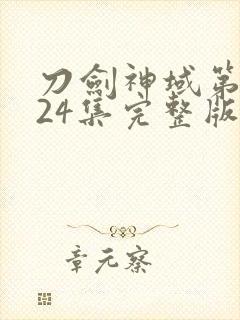 刀劍神域第
24集完整版
章元察